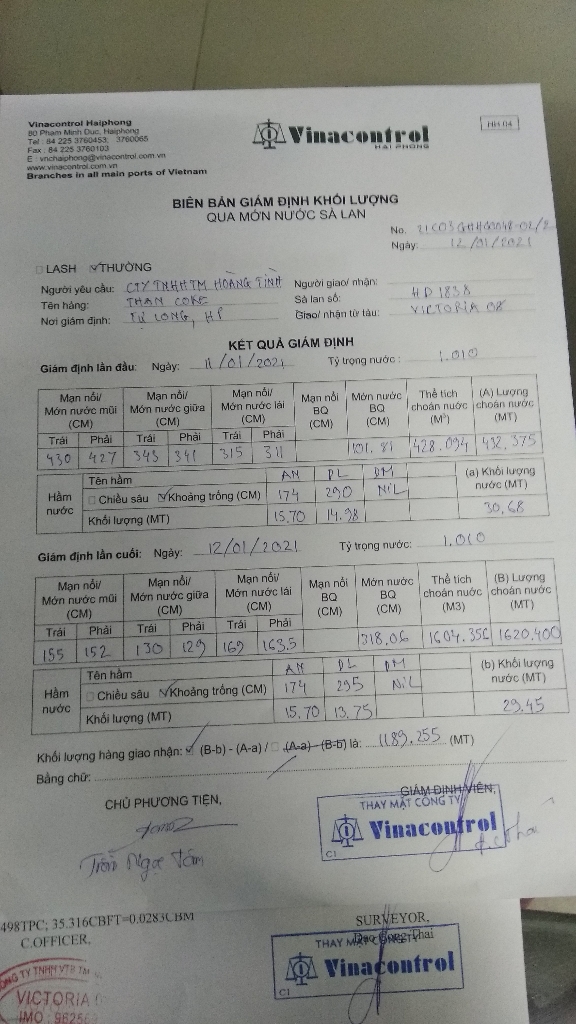 Vinacontrol Haiphong
80 Pham Minh Duc, Haiphong
Tel : 84 225 3760453; 3760065
Fax : 84 225 3760103
E : vnchaiphong@vinacontrol.com.vn
www.vinacontrol.com.vn
Branches in all main ports of Vietnam
Vinacontrol
HAI PHONG
HH-04
BIÊN BẢN GIÁM ĐỊNH KHỐI LƯỢNG
QUA MỚN NƯỚC SÀ LAN
No.
Ngày: 12/01/2021
LASH THƯỜNG
Người yêu cầu: CTY TNHH TM HOÀNG TỈNH Người giao/ nhận:
Tên hàng: THAN COKE Sà lan số: HD 1838
Nơi giám định: TỰ LONG, HP Giao/ nhận từ tàu: VICTORIA 08
KẾT QUẢ GIÁM ĐỊNH
Giám định lần đầu: Ngày: 11/01/2021 Tỷ trọng nước: 1.010
Mạn nổi/ Mớn nước mũi (CM) Mạn nổi/ Mớn nước giữa (CM) Mạn nổi/ Mớn nước lái (CM) Mạn nổi BQ (CM) Mớn nước BQ (CM) Thể tích choán nước (M³) (A) Lượng choán nước (MT)
Trái Phải Trái Phải Trái Phải
430 427 343 341 315 311 101.81 428.094 432.375
Hầm nước Tên hầm AN DL DM (a) Khối lượng nước (MT)
Chiều sâu Khoảng trống (CM) 174 290 NiL
Khối lượng (MT) 15.70 14.98 30.68
Giám định lần cuối: Ngày: 12/01/2021 Tỷ trọng nước: 1.010
Mạn nổi/ Mớn nước mũi (CM) Mạn nổi/ Mớn nước giữa (CM) Mạn nổi/ Mớn nước lái (CM) Mạn nổi BQ (CM) Mớn nước BQ (CM) Thể tích choán nước (M3) (B) Lượng choán nước (MT)
Trái Phải Trái Phải Trái Phải
155 152 130 129 169 163.5 318.06 1604.356 1620.400
Hầm nước Tên hầm AN DL DM (b) Khối lượng nước (MT)
Chiều sâu Khoảng trống (CM) 174 295 NiL
Khối lượng (MT) 15.70 13.75 29.45
Khối lượng hàng giao nhận: (B-b) - (A-a) / (A-a) - (B-b) là: 1189.255 (MT)
Bằng chữ:
CHỦ PHƯƠNG TIỆN, GIÁM ĐỊNH VIÊN,
THAY MẶT CÔNG TY
Vinacontrol
C1
Trần Ngọc Tám
498TPC; 35.316CBFT=0.0283CBM
C.OFFICER, SURVEYOR,
Dao Cong Thai
THAY MẶT CÔNG TY
Vinacontrol
C1
CÔNG TY TNHH VTB
VICTORIA
IMO : 98256